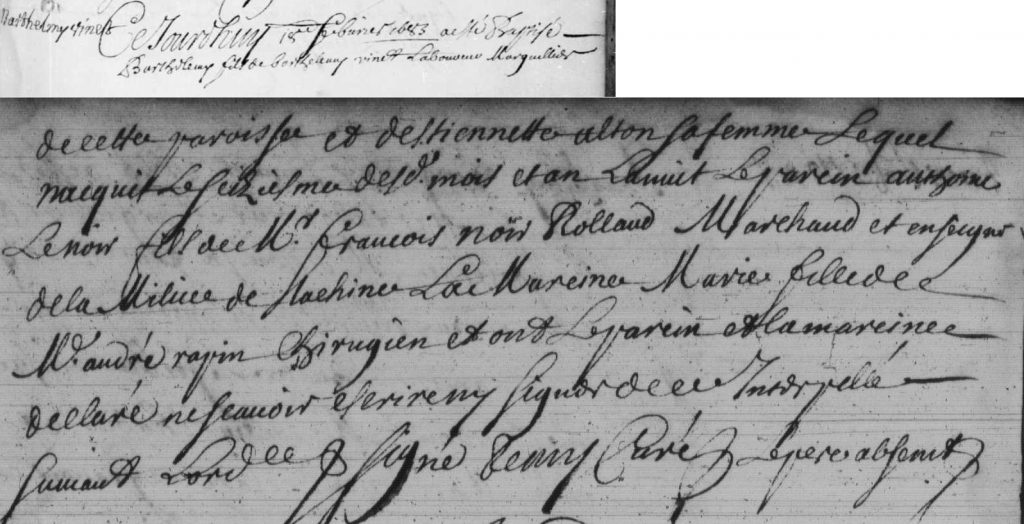 Barthelemy vinet
Ce Jourdhuy 18e febvrier 1683 a esté Baptisé
Barthelemy fils de barthelemy vinet Laboureur Marguillier
de cette paroisse et destiennette alton sa femme Lequel
nacquit Le seiziesme desd. mois et an La nuit Le parein anthoine
Le noir fils de Mr. francois noir Rolland Marchand et enseigne
de la Milice de Lachine La Mareine Marie fille de
Mr. andré rapin Chirugien et ont Le parein et la mareine
declaré ne scavoir escrire ny signer de ce Interpellé
suivant Lord.ce signé Remy Curé Le pere absent